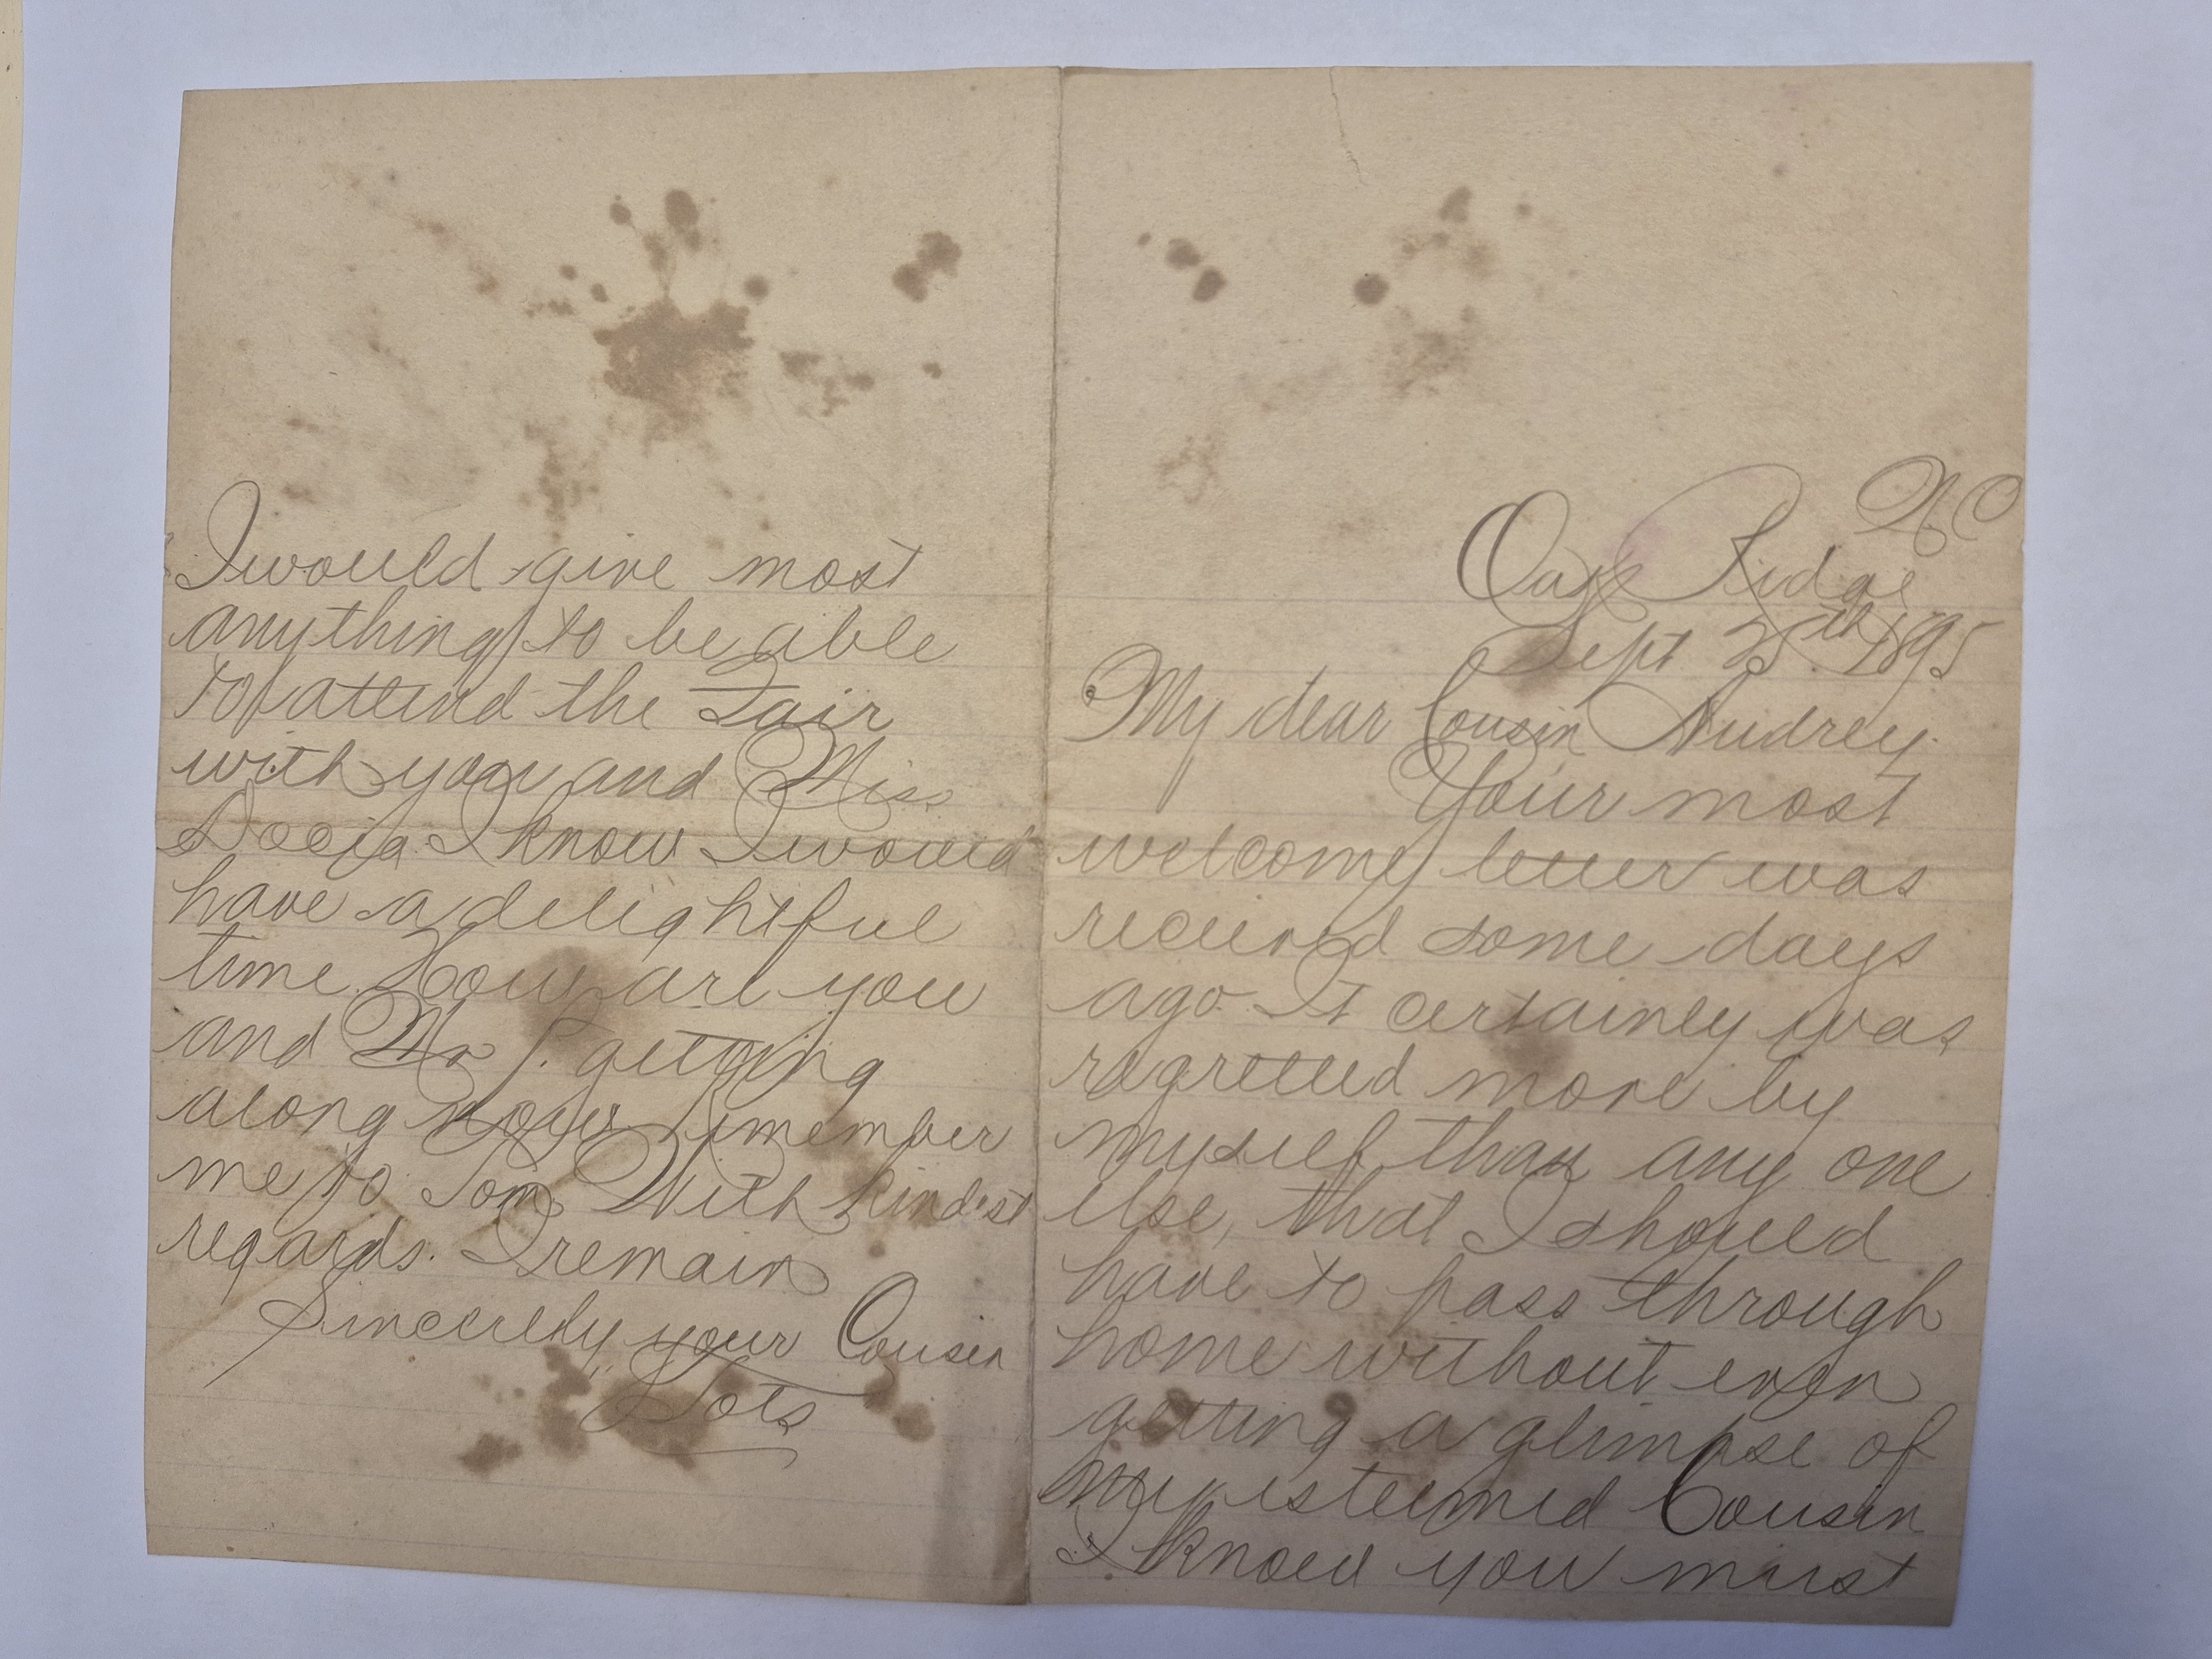 N C
Oak Ridge
Sept 25th 1895
My dear Cousin Audrey.
Your most
welcome letter was
received some days
ago. It certainly was
regretted more by
myself than any one
else, that I should
have to pass through
home without even
getting a glimpse of
my esteemed Cousin
I know you must
I would give most
anything to be able
to attend the Fair
with you and Miss
Docia I know I would
have a delightful
time. How are you
and Mr P. getting
along now. Remember
me to Tom. With kindest
regards. I remain
Sincerely your Cousin
"Lots